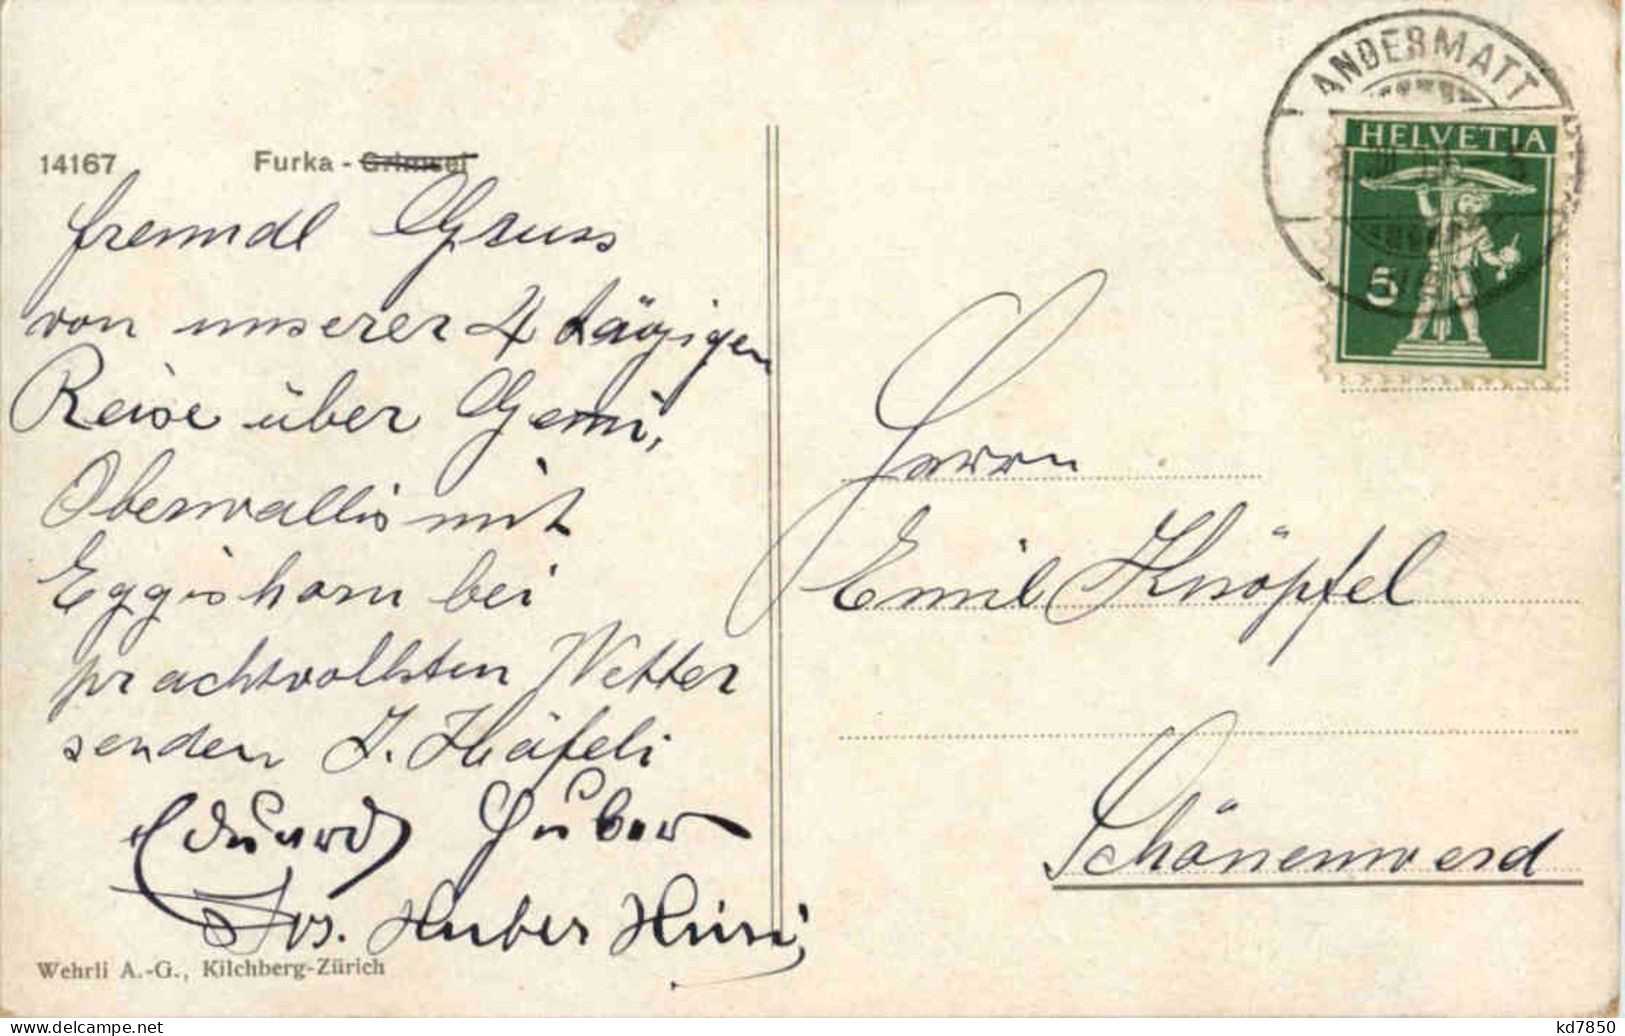 14167 Furka - Grimsel
freundl Gruss
von unserer 4 tägigen
Reise über Gemi,
Oberwallis mit
Eggishorn bei
prachtvollsten Wetter
senden J. Häfeli
Eduard Huber
Jos. Huber
Wehrli A.-G., Kilchberg-Zürich
ANDERMATT
HELVETIA
5
Herrn
Emil Knöpfel
Schönenwerd
delcampe.net
kd7850